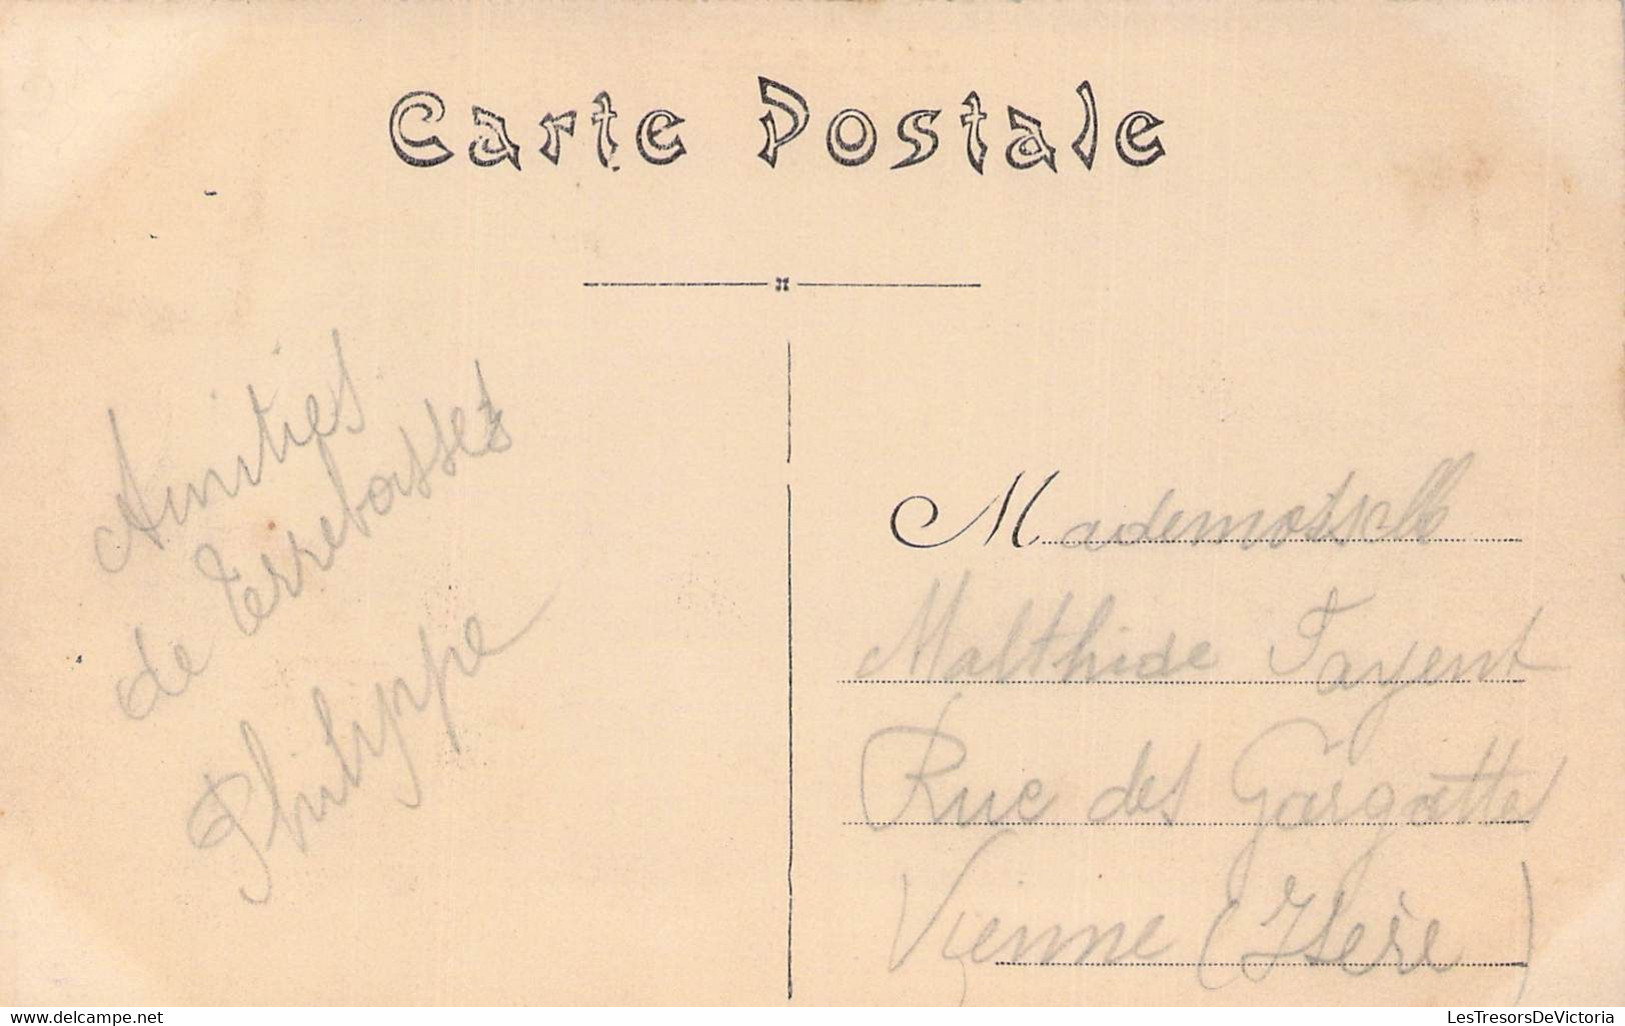 Carte Postale
Amitiés
de Terrebasses
Philyppe
Mademoiselle
Malthide Fayent
Rue des Gargattes
Vienne (Isère)
delcampe.net
LesTresorsDeVictoria